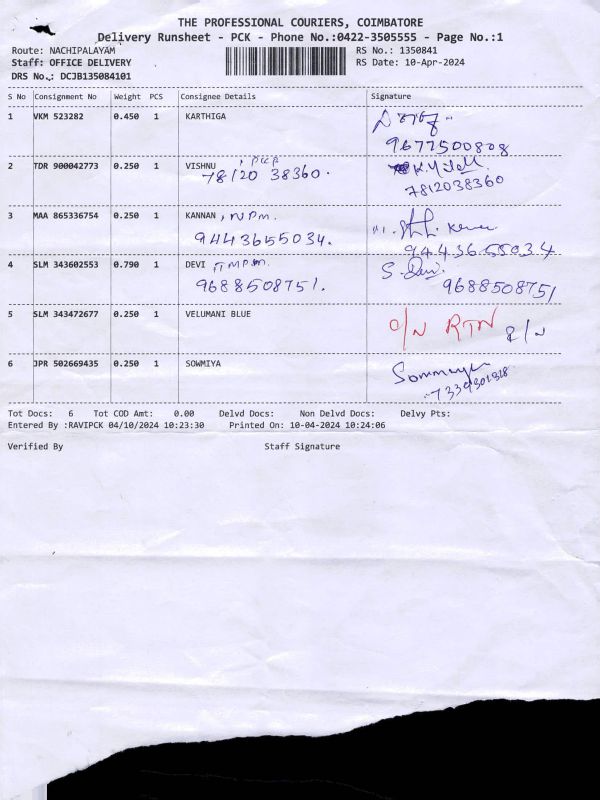 THE PROFESSIONAL COURIERS, COIMBATORE
Delivery Runsheet - PCK - Phone No.:0422-3505555 - Page No.:1
Route: NACHIPALAYAM RS No.: 1350841
Staff: OFFICE DELIVERY RS Date: 10-Apr-2024
DRS No.: DCJB135084101
S No Consignment No Weight PCS Consignee Details Signature
1 VKM 523282 0.450 1 KARTHIGA
9677500808
2 TDR 900042773 0.250 1 VISHNU
78120 38360.
7812038360
3 MAA 865336754 0.250 1 KANNAN, NPM.
9443655034. 9443655034
4 SLM 343602553 0.790 1 DEVI
9688508751. 9688508751
5 SLM 343472677 0.250 1 VELUMANI BLUE
O/N RTN
6 JPR 502669435 0.250 1 SOWMIYA
Tot Docs: 6 Tot COD Amt: 0.00 Delvd Docs: Non Delvd Docs: Delvy Pts:
Entered By :RAVIPCK 04/10/2024 10:23:30 Printed On: 10-04-2024 10:24:06
Verified By Staff Signature